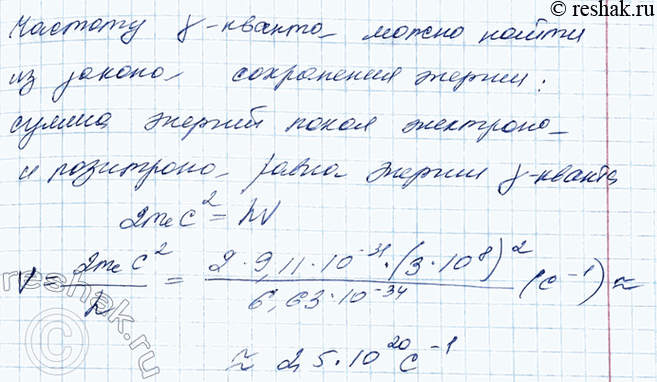 © reshak.ru
Частоту γ-кванта можно найти
из закона сохранения энергии:
сумма энергий покоя электрона
и позитрона равна энергии γ-кванта
2mₑc² = hν
ν = 2mₑc²/h = 2·9,11·10⁻³¹·(3·10⁸)²/6,63·10⁻³⁴ (с⁻¹) ≈
≈ 2,5·10²⁰ с⁻¹
reshak.ru